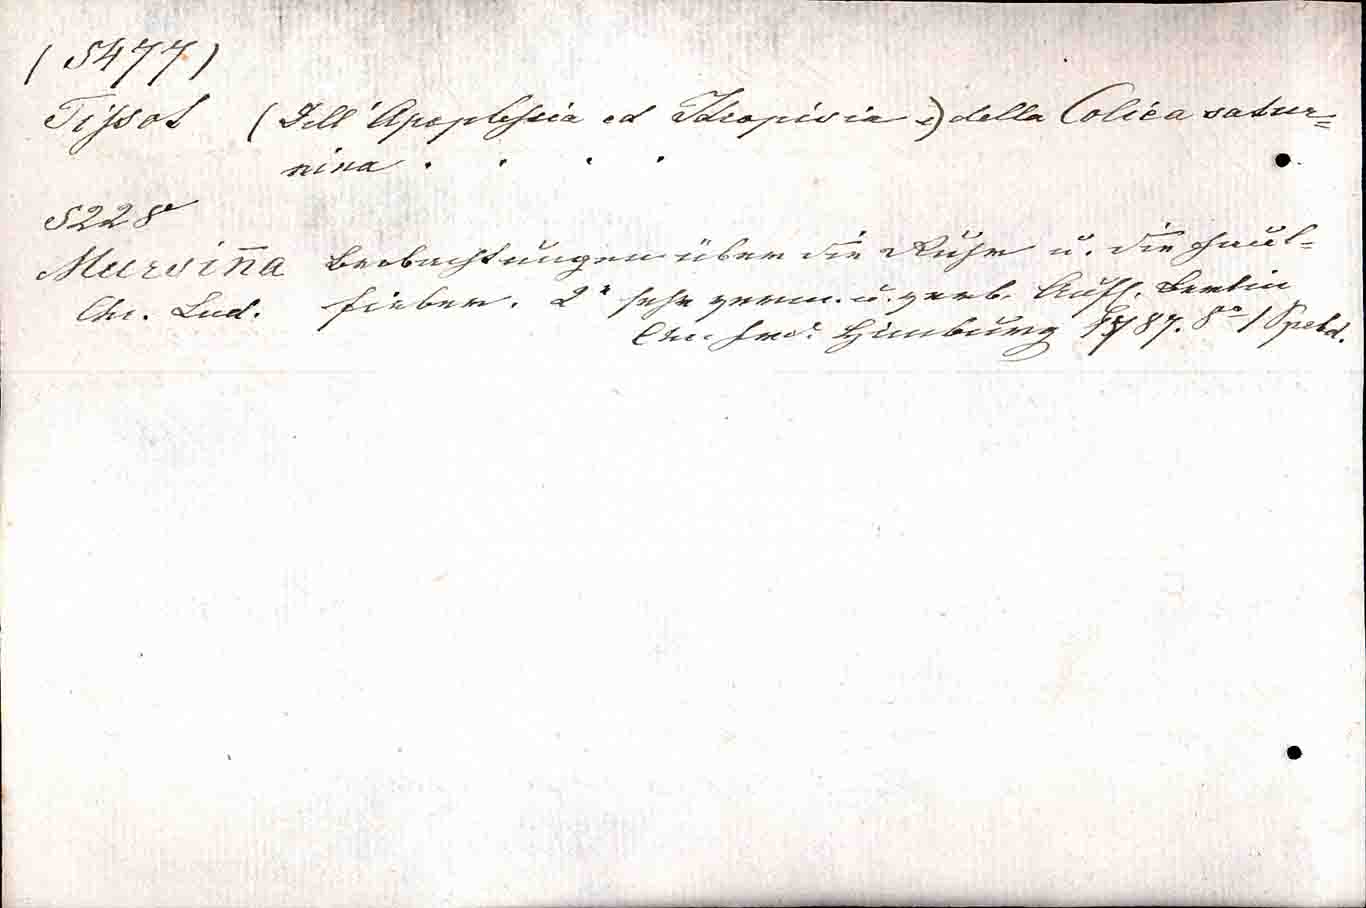 (5477)
Tissot (Dell' Apoplessia ed Idropisia e) della Colica satur=
nina . . . .
5228
Mursiña Beobachtungen über die Ruhr u. die Faul=
Chr. Lud. fieber. 2e sehr verm. u. verb. Aufl. Berlin
Himburg 1787. 8o /